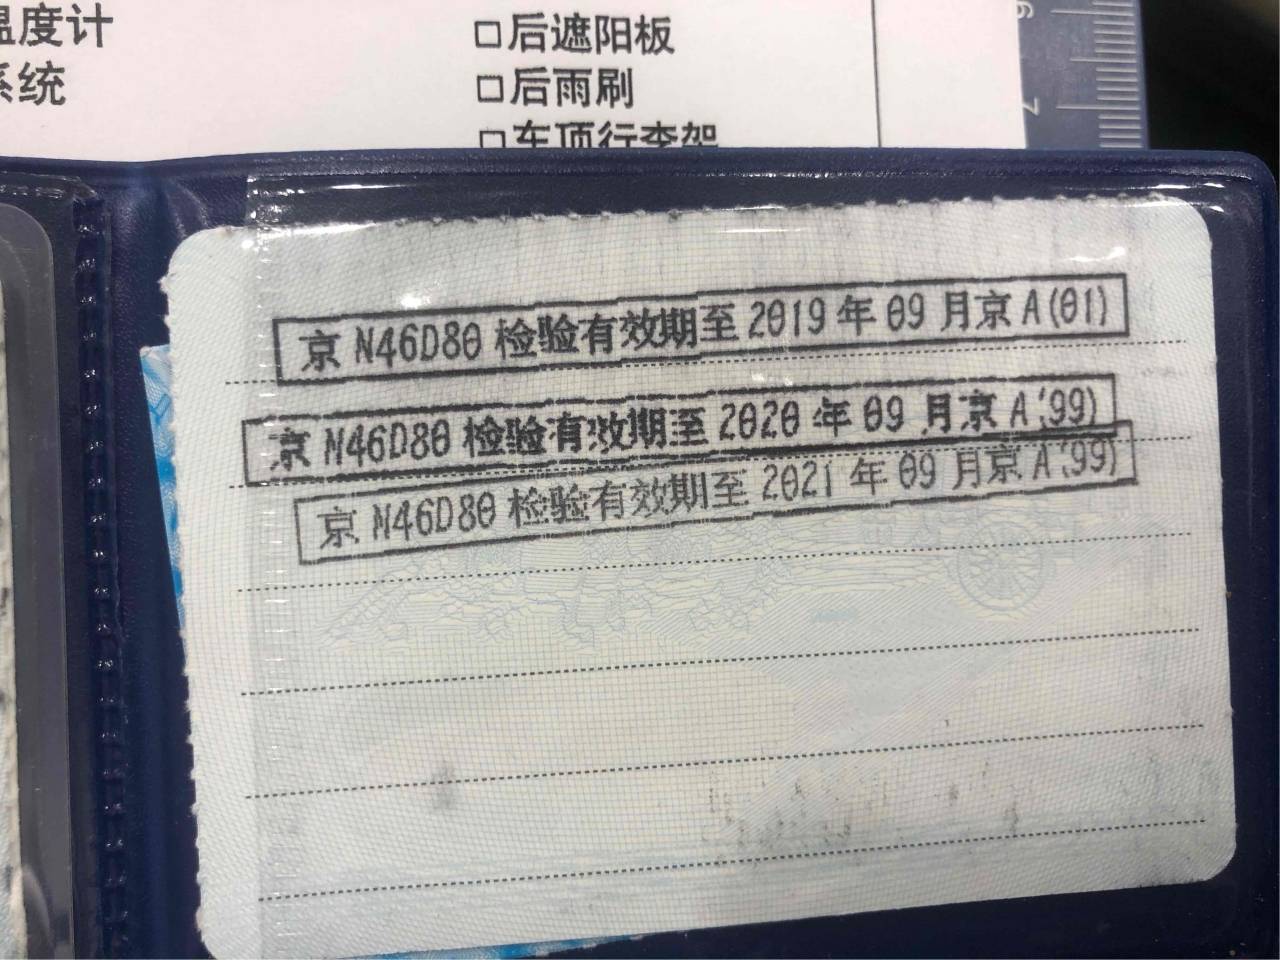 温度计
系统
□后遮阳板
□后雨刷
□车顶行李架
6
7
京 N46D80 检验有效期至 2019 年 09 月京 A(01)
京 N46D80 检验有效期至 2020 年 09 月京 A(99)
京 N46D80 检验有效期至 2021 年 09 月京 A(99)